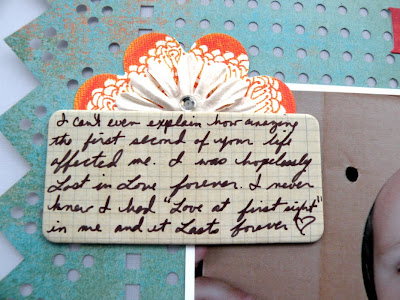 I can't even explain how amazing
the first second of your life
affected me. I was hopelessly
Lost in Love forever. I never
knew I had "Love at first sight"
in me and it Lasts forever ♡